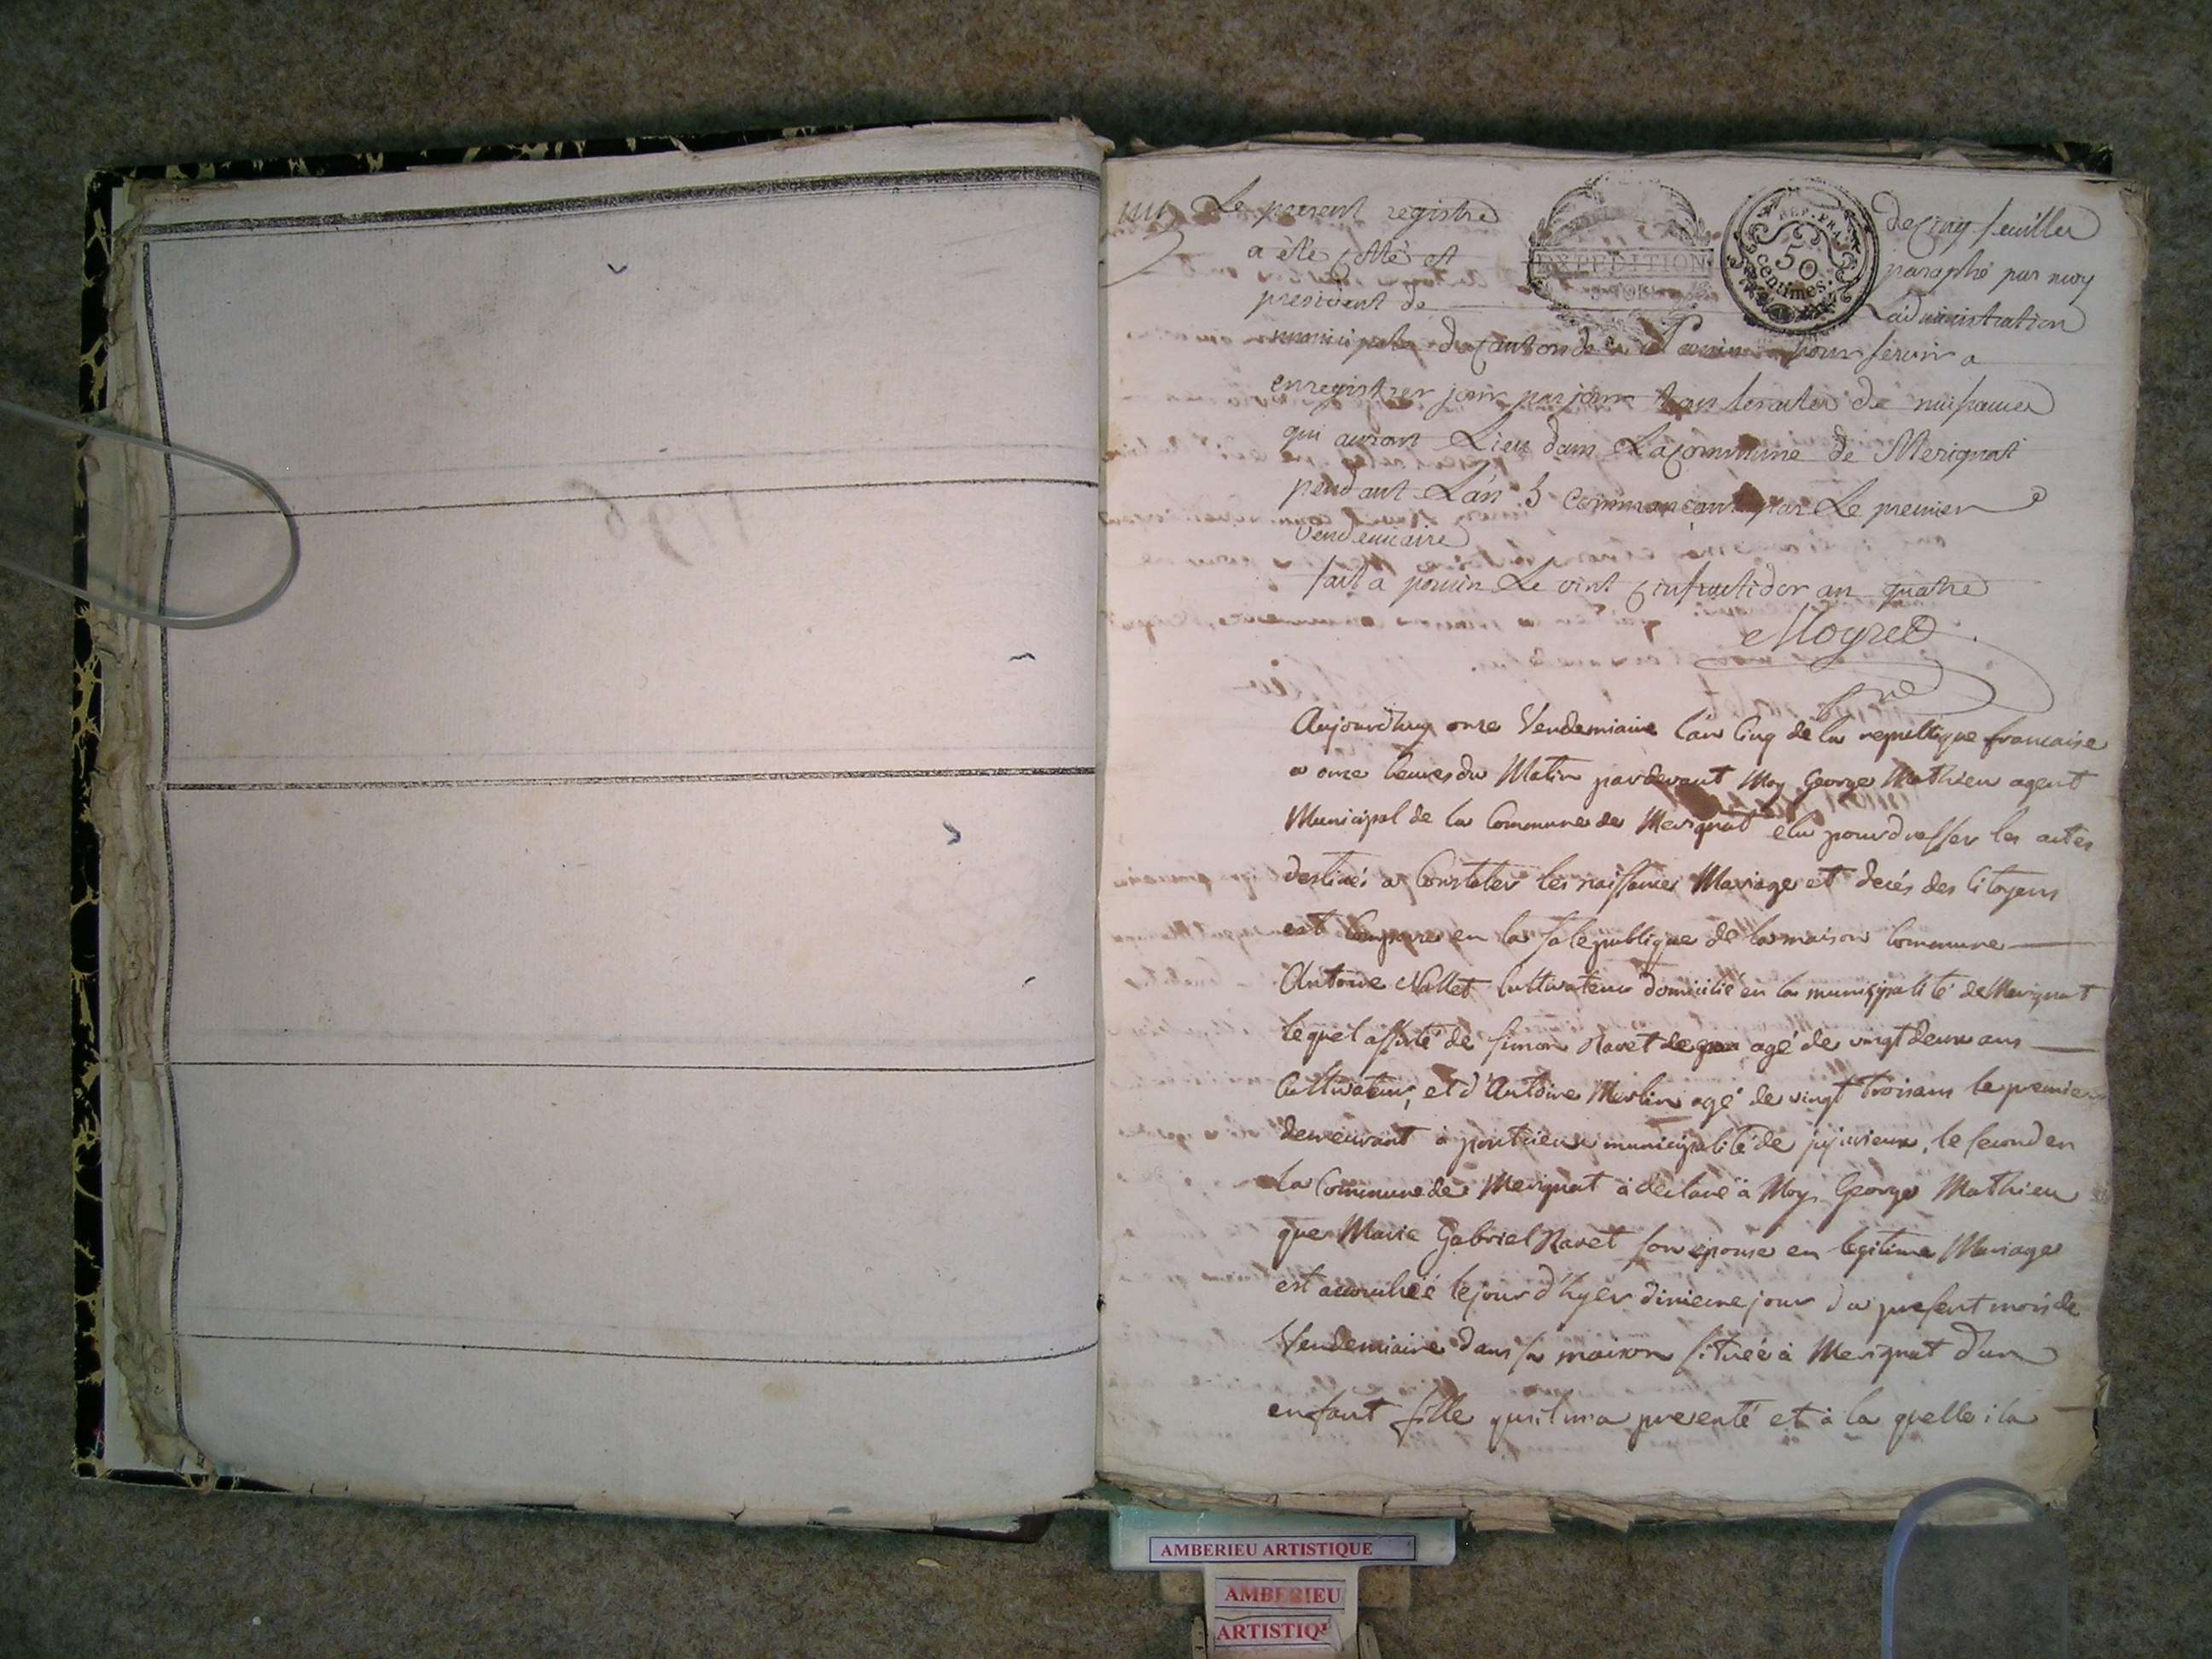 Le present registre de Cinq feuilles
a été cotté et paraphé par moy
president de L'administration
municipale du Canton de poncin pour servir a
enregistrer jour par jour tous les actes de naissances
qui auront Lieu dans La Commune de Merignat
pendant L'an 5 commançant par Le premier
Vendemiaire
fait a poncin Le vint cinq fructidor an quatre
Moyret
EXPEDITION
REP. FRA.
50
centimes.
Aujourdhuy onze Vendemiaire l'an Cinq de la republique francaise
a onze heures du Matin pardevant Moy George Mathieu agent
Municipal de la Commune de Merignat elu pour dresser les actes
destinés a Constater les naissances Mariage et decés des Citoyens
est Comparu en la sale publique de la maison Commune
Antoine Nallet Cultivateur domicilié en la municipalité de Merignat
lequel assisté de Simon Ravet agé de vingt deux ans
Cultivateur, et d'Antoine Merlin agé de vingt trois ans le premier
demeurant à municipalité de jujurieux, le second en
la Commune de Merignat à declaré à Moy George Mathieu
que Marie Gabriel Ravet son épouse en legitime Mariage
est accouchée le jour d'hyer dixieme jour du present mois de
Vendemiaire dans sa maison située à Merignat d'un
enfant fille qu'il m'a presenté et à la quelle il a
1796
AMBERIEU ARTISTIQUE
AMBERIEU
ARTISTIQU